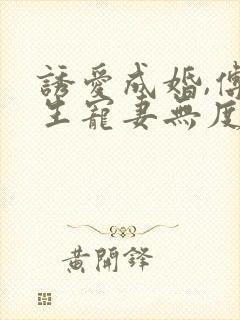 誘愛成婚,傅
生寵妻無度
黃開鋒